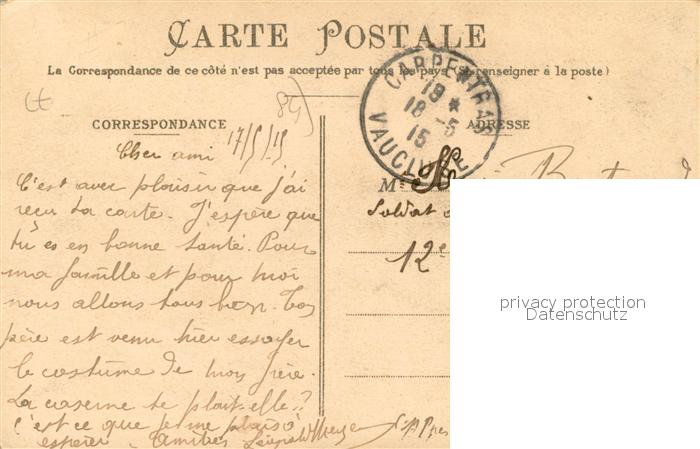 CARTE POSTALE
La Correspondance de ce côté n'est pas acceptée par tous les pays (Se renseigner à la poste)
84)
CORRESPONDANCE
ADRESSE
CARPENTRAS
18 *
18 -5
15
VAUCLUSE
17/5/15
Cher ami
C'est avec plaisir que j'ai
reçu ta carte. J'espère que
tu es en bonne santé. Pour
ma famille et pour moi
nous allons tous bien. Ton
père est venu hier essayer
le costume de mon frère.
La caserne te plait-elle??
C'est ce que je me plais à
espérer. Amitiés
M
Soldat
12e
privacy protection
Datenschutz